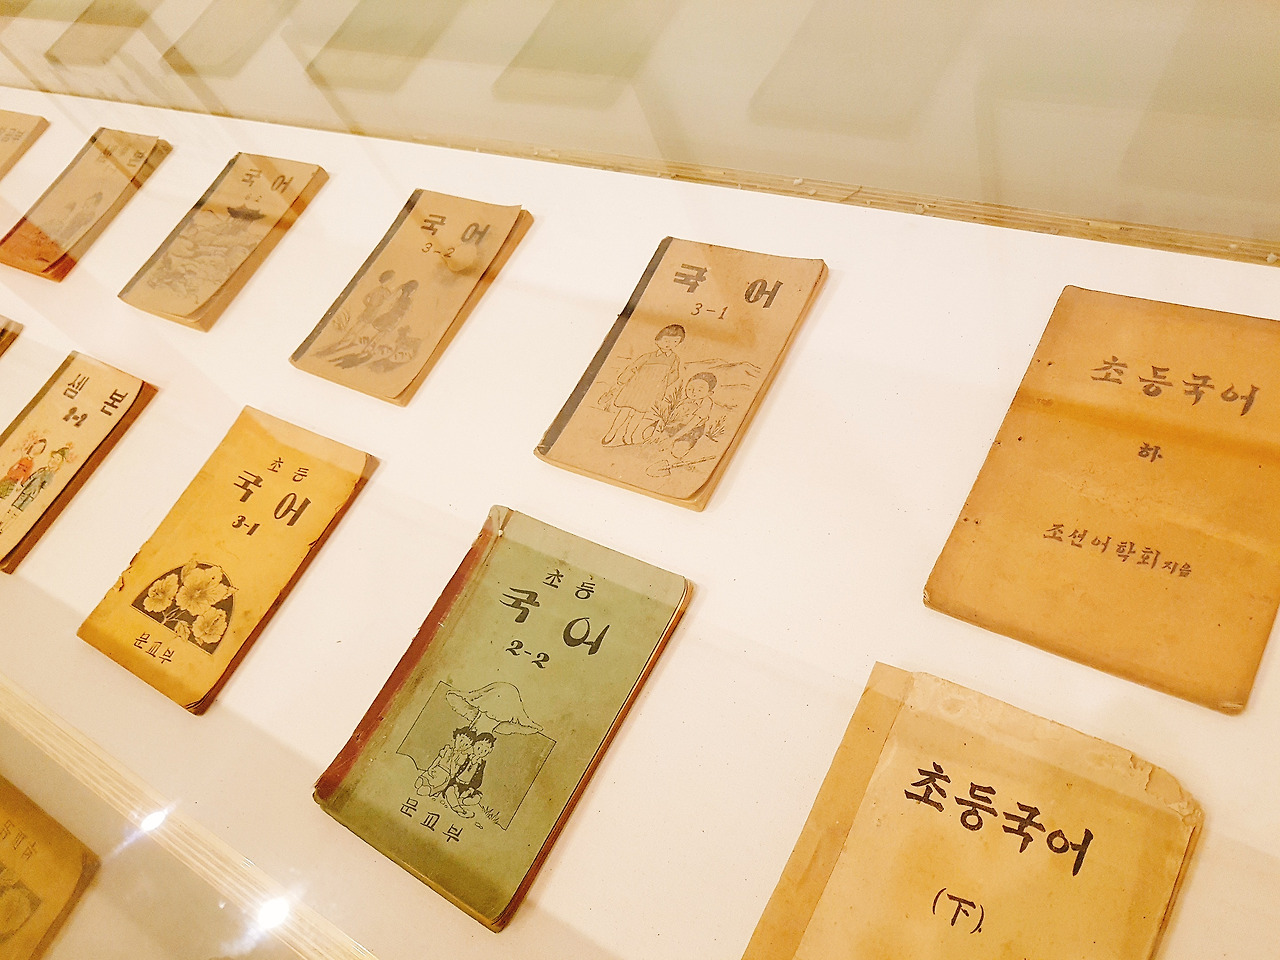 국어
국어
3-2
국어
3-1
초등국어
하
조선어학회 지음
셈본
초등
국어
3-1
문교부
초등
국어
2-2
문교부
초등국어
(下)